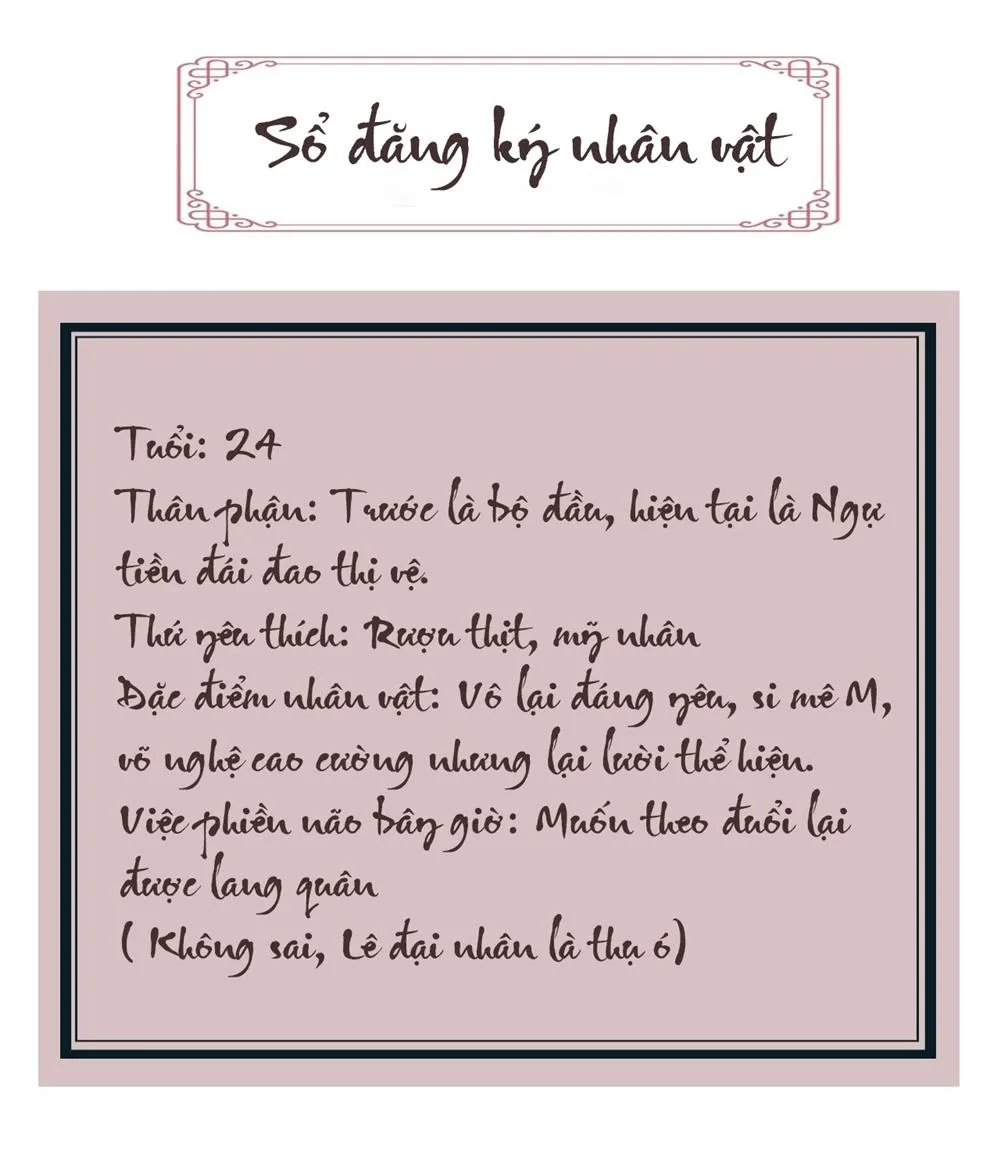 Sổ đăng ký nhân vật
Tuổi: 24
Thân phận: Trước là bộ đầu, hiện tại là Ngự
tiền đái đao thị vệ.
Thứ yêu thích: Rượu thịt, mỹ nhân
Đặc điểm nhân vật: Vô lại đáng yêu, si mê M,
võ nghệ cao cường nhưng lại lười thể hiện.
Việc phiền não bây giờ: Muốn theo đuổi lại
được lang quân
( Không sai, Lê đại nhân là thụ ó)